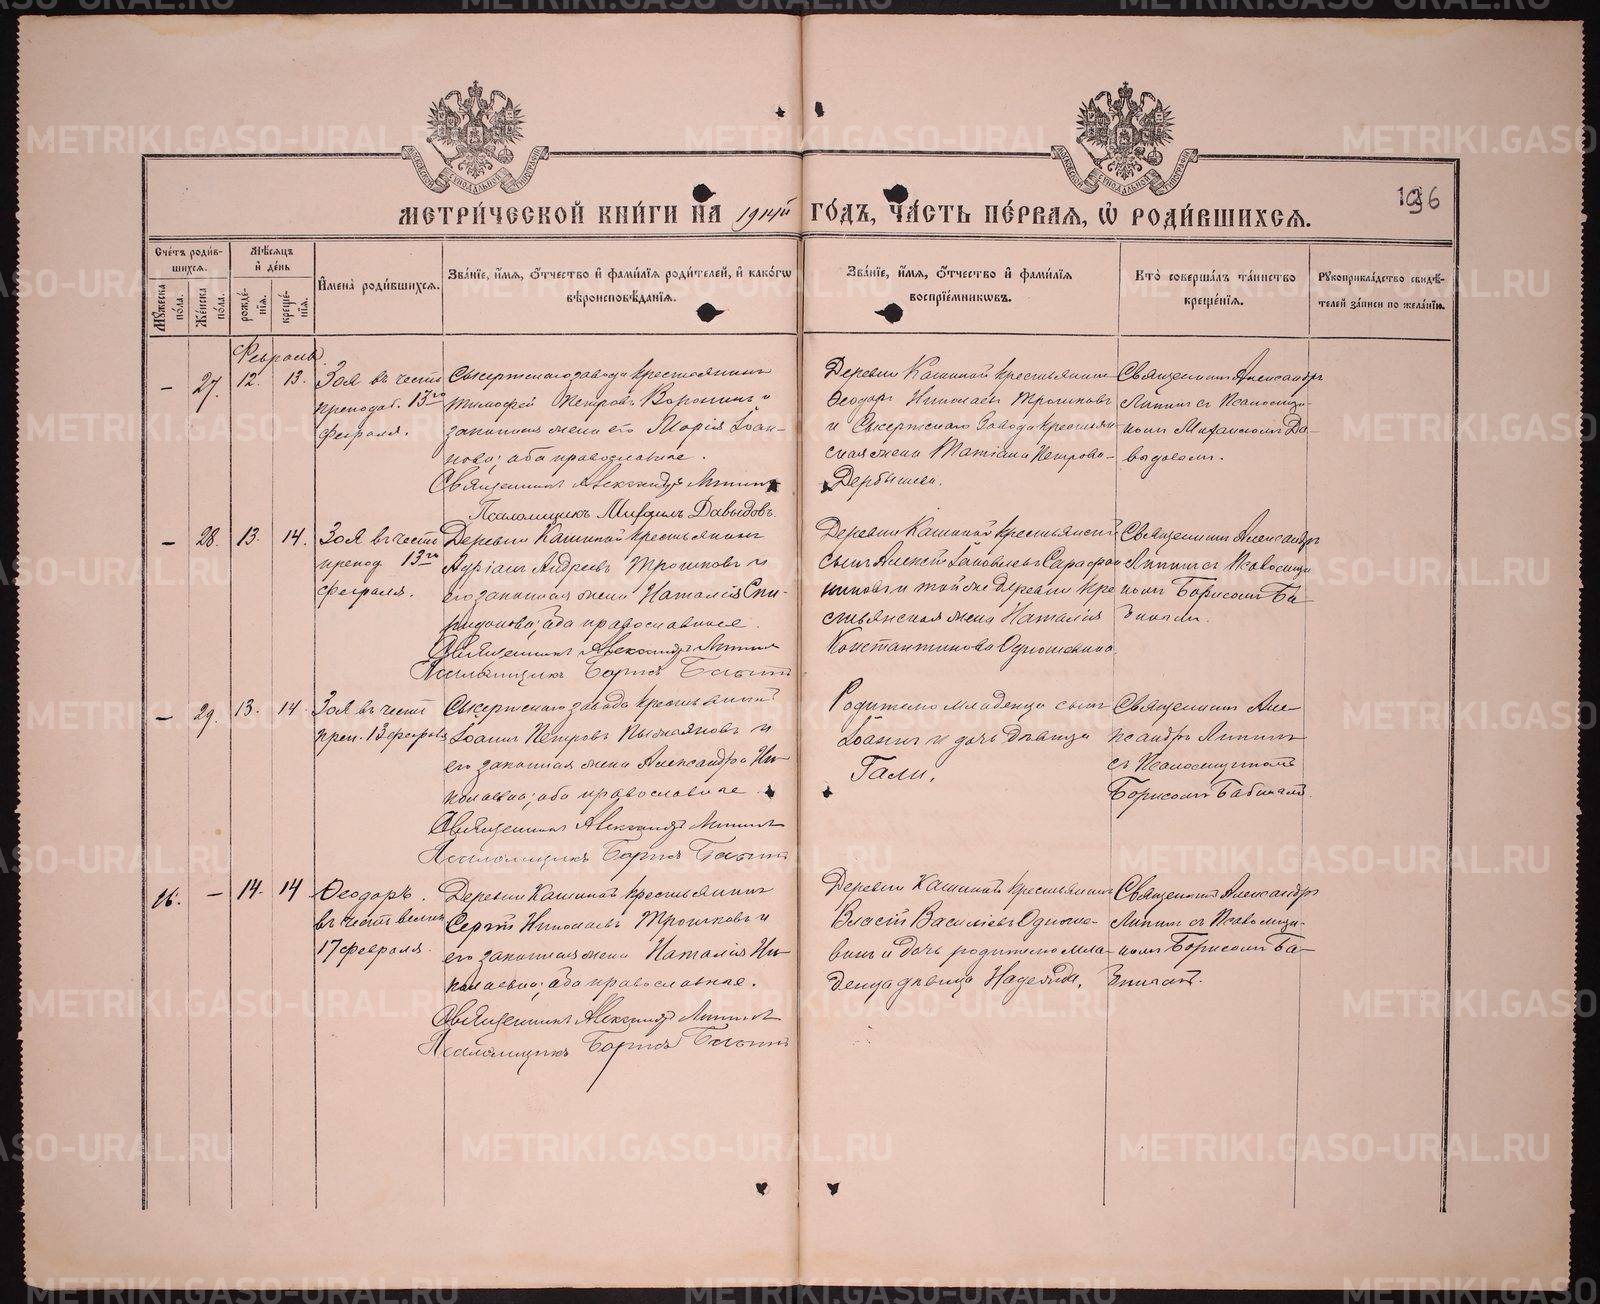 МЕТРИЧЕСКОЙ КНИГИ НА 1914й ГОДЪ, ЧАСТЬ ПЕРВАЯ, Ѡ РОДИВШИХСЯ.
136
Счетъ родив-
шихся.
Мужеска пола.
Женска пола.
Мѣсяцъ
и день
рожде-
нія.
креще-
нія.
Имена родившихся.
Званіе, имя, отчество и фамилія родителей, и какогѡ
вѣроисповѣданія.
Званіе, имя, отчество и фамилія
воспріемниковъ.
Кто совершалъ таинство
крещенія.
Рукоприкладство свидѣ-
телей записи по желанію.
Февраль
— 27. 12. 13.
Зоя въ честь
преподоб. 13го
февраля.
Сысертскаго завода крестьянинъ
Тимофей Петровъ Воронинъ и
законная жена его Марія Іоан-
нова; оба православные.
Священникъ Александръ
Псаломщикъ Михаилъ Давыдовъ.
Деревни Кашиной крестьянинъ
Ѳеодоръ Николаевъ Трошковъ
и Сысертскаго Завода крестьян-
ская жена Татіана Петрова
Дербышева.
Священникъ Александръ
съ Псаломщи-
комъ Михаиломъ Да-
выдовымъ.
— 28. 13. 14.
Зоя въ честь
препод 13го
февраля.
Деревни Кашиной крестьянинъ
Адріанъ Андреевъ Трошковъ и
его законная жена Наталія Спи-
ридонова; оба православные.
Священникъ Александръ
Псаломщикъ Борисъ
Деревни Кашиной крестьянскій
сынъ Алексѣй Іаковлевъ Сарафан
никовъ и той же Деревни кре
стьянская жена Наталія
Константинова Одношевина
Священникъ Александръ
съ Псаломщи
комъ Борисомъ Ба
бинымъ.
— 29. 13. 14.
Зоя въ честь
преп. 13 февраля
Сысертскаго завода крестьянинъ
Іоаннъ Петровъ и
его законная жена Александра Ни-
колаевна; оба православные.
Священникъ Александръ
Псаломщикъ Борисъ
Родителю младенца сынъ
Іоаннъ и дочь дѣвица
Священникъ Але-
ксандръ
съ Псаломщикомъ
Борисомъ Бабинымъ.
16. — 14. 14
Ѳеодоръ.
въ честь велик
17 февраля.
Деревни Кашиной крестьянинъ
Сергій Николаевъ Трошковъ и
его законная жена Наталія Ни-
колаевна; оба православные.
Священникъ Александръ
Псаломщикъ Борисъ
Деревни Кашиной крестьянинъ
Власій Василіевъ Одноше-
винъ и дочь родителю мла-
денца дѣвица Надежда.
Священникъ Александръ
съ Псаломщи-
комъ Борисомъ Ба-
бинымъ.
METRIKI.GASO-URAL.RU